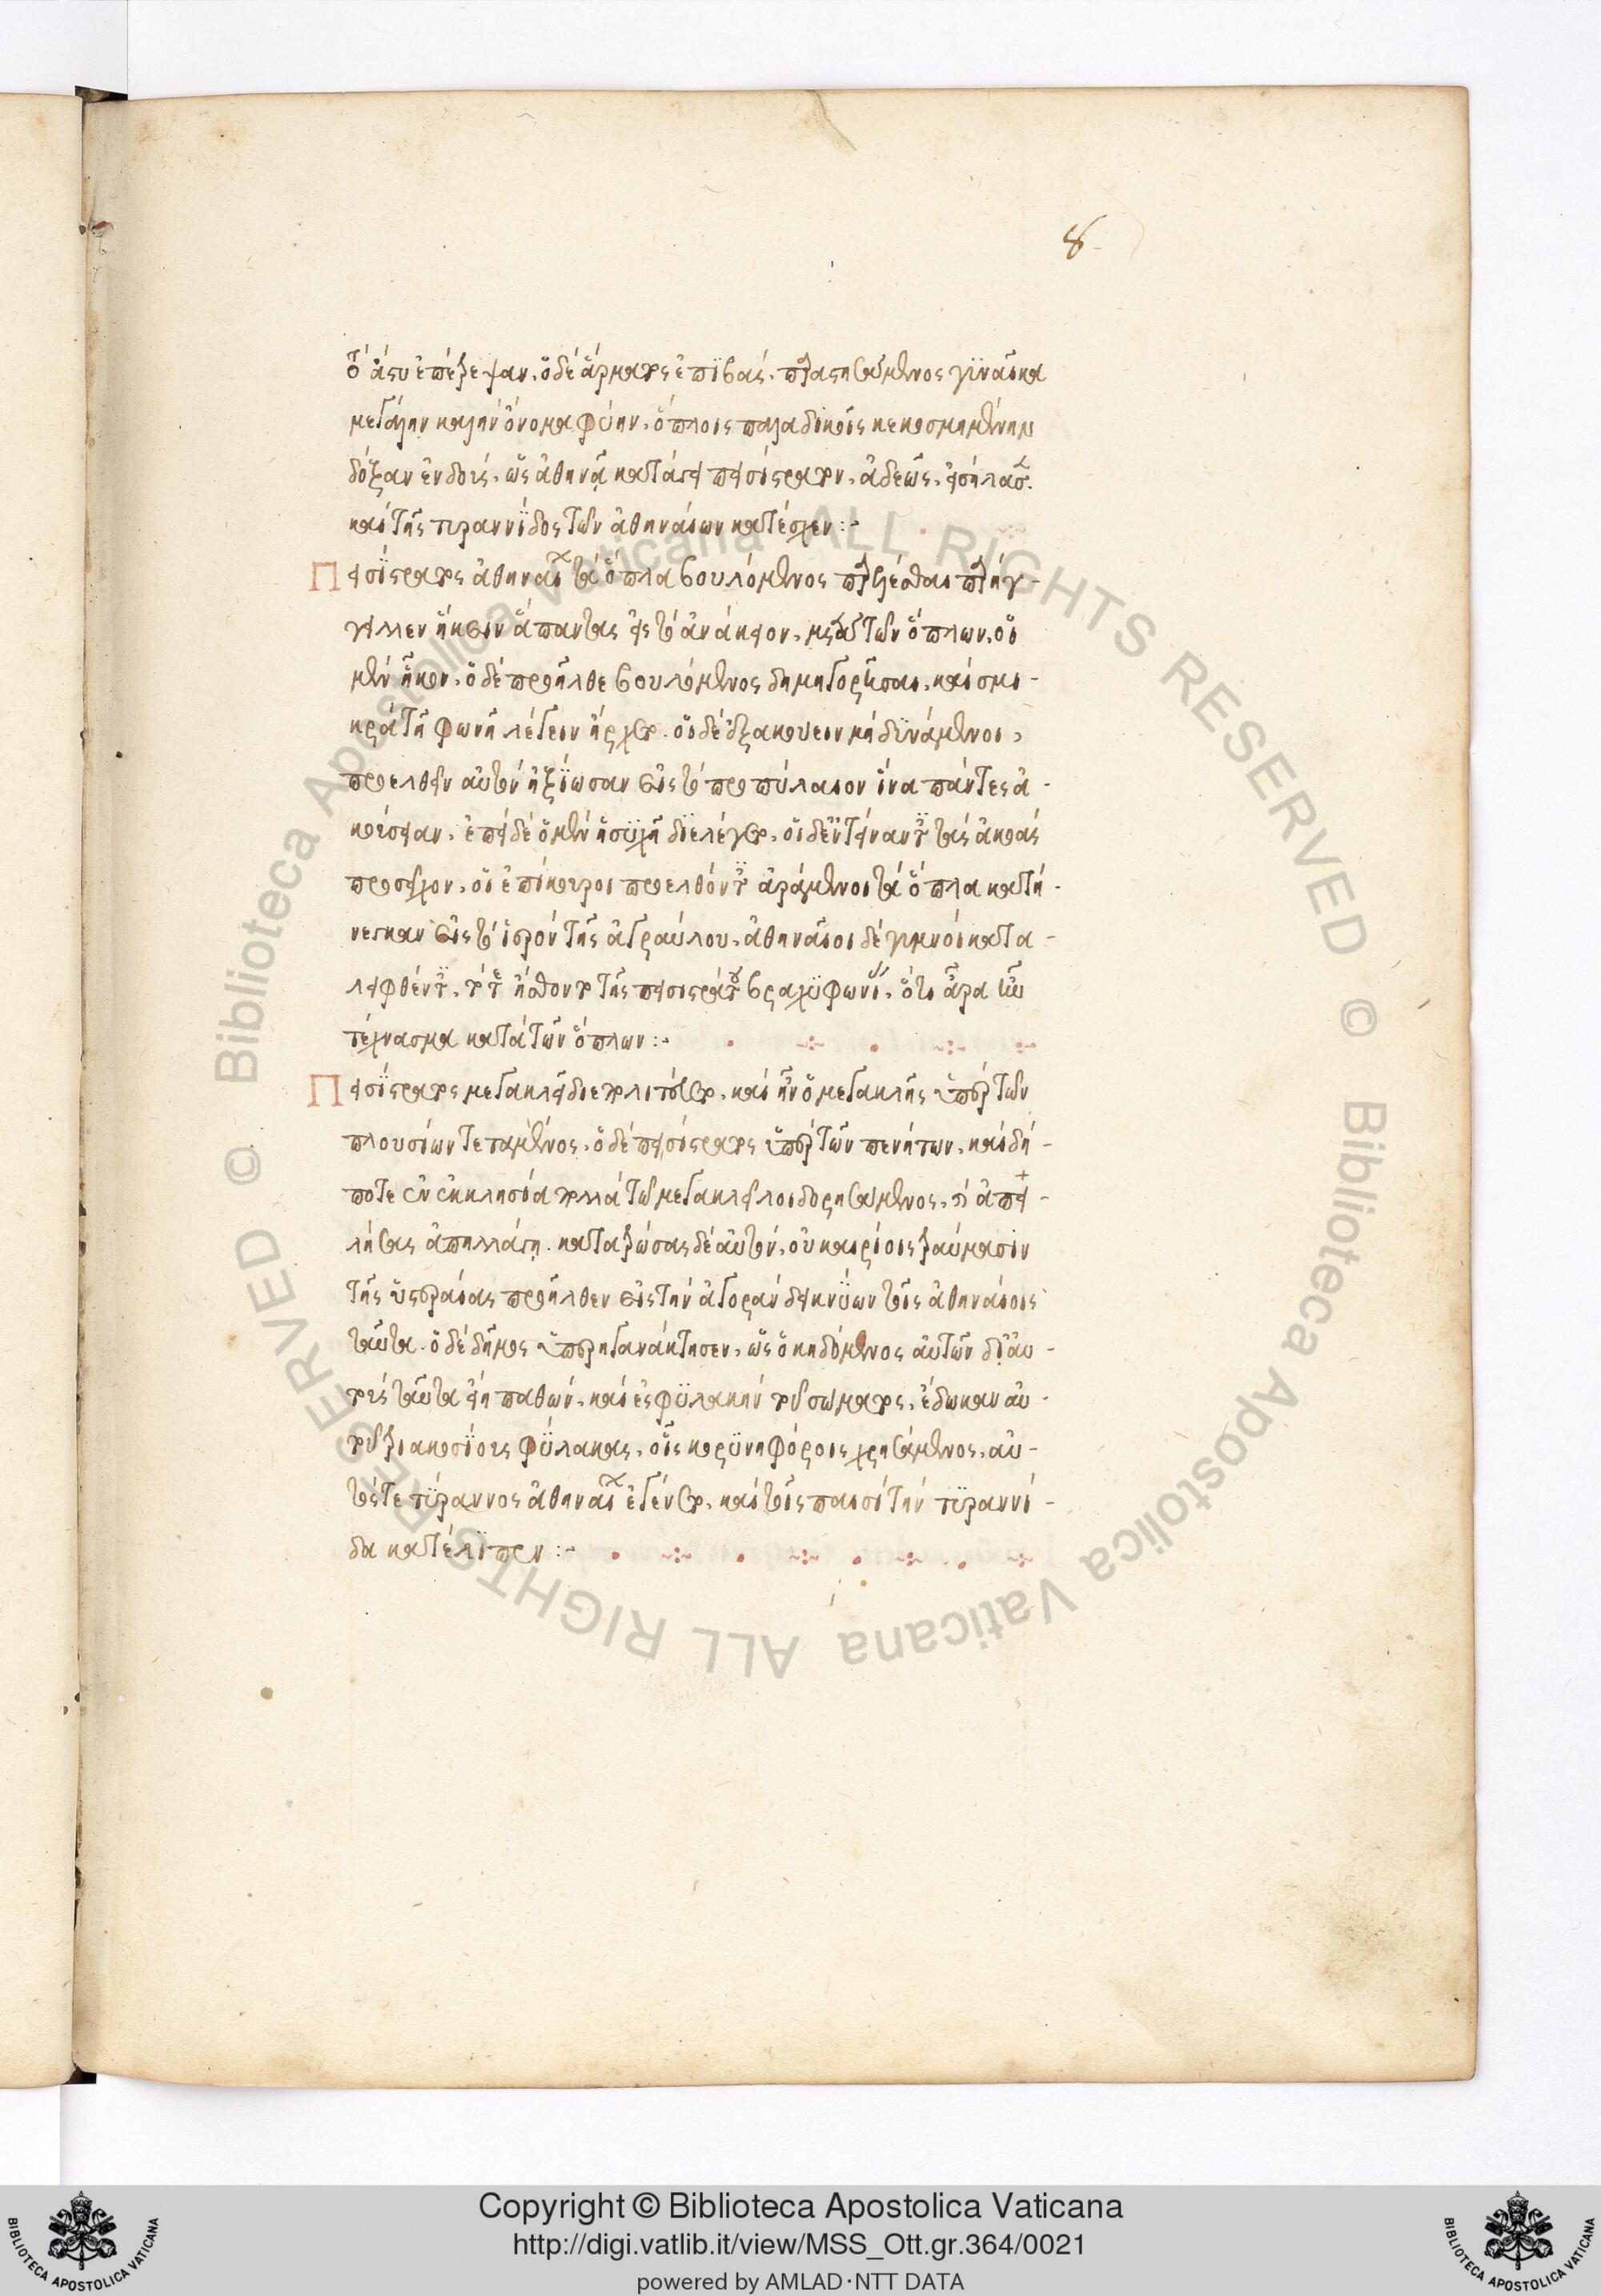 8
τὸ ἄστυ ἐπέτρεψαν. ὁ δὲ ἅρματος ἐπιβὰς. παραστησάμενος γυναῖκα
μεγάλην καλὴν ὄνομα φύην. ὅπλοις παλαδικοῖς κεκοσμημένην
δόξαν ἐνδοὺς. ὡς ἀθηνᾶ κατάγει πεισίστρατον. ἀδεῶς. εἰσήλασε.
καὶ τῆς τυραννίδος τῶν ἀθηναίων κατέσχεν :-
Πεισίστρατος ἀθηναίων τὰ ὅπλα βουλόμενος παρελέσθαι παρήγ-
γειλεν ἥκειν ἅπαντας εἰς τὸ ἀνάκειον. μετὰ τῶν ὅπλων. οἱ
μὲν ἧκον. ὁ δὲ προῆλθε βουλόμενος δημηγορῆσαι. καὶ σμι-
κρᾶ τῆ φωνῆ λέγειν ἤρχετο. οἱ δὲ ἐξακούειν μὴ δυνάμενοι,
προελθεῖν αὐτὸν ἠξίωσαν εἰς τὸ προπύλαιον ἵνα πάντες ἀ-
κούσειαν. ἐπεὶ δὲ ὁ μὲν ἡσυχῆ διελέγετο. οἱ δὲ ἐντείναντες τὰς ἀκοὰς
προσεῖχον. οἱ ἐπίκουροι προελθόντες ἀράμενοι τὰ ὅπλα κατή-
νεγκαν εἰς τὸ ἱερὸν τῆς ἀγραύλου. ἀθηναῖοι δὲ γυμνοὶ κατα-
λειφθέντες. τότε ἤσθοντο τῆς πεισιστράτου βραχυφωνίας. ὅτι ἄρα ἦν
τέχνασμα κατὰ τῶν ὅπλων :-
Πεισίστρατος μεγακλεῖ διεπολιτεύετο. καὶ ἦν ὁ μεγακλῆς ὑπὲρ τῶν
πλουσίων τεταγμένος. ὁ δὲ πεισίστρατος ὑπὲρ τῶν πενήτων. καὶ δή-
ποτε ἐν ἐκκλησία πολλὰ τῶ μεγακλεῖ λοιδορησάμενος. καὶ ἀπει-
λήσας ἀπηλλάγη. κατατρώσας δὲ αὑτὸν. οὐ καιρίοις τραύμασιν
τῆς ὑστεραίας προῆλθεν εἰς τὴν ἀγορὰν δεικνύων τοῖς ἀθηναίοις
ταῦτα. ὁ δὲ δῆμος ὑπερηγανάκτησεν. ὡς ὁ κηδόμενος αὐτῶν δι' αὐ-
τοὺς ταῦτα εἴη παθὼν. καὶ ἐς φυλακὴν τοῦ σώματος. ἔδωκαν αὐ-
τοῦ τριακοσίους φύλακας. οἷς κορυνηφόροις χρησάμενος. αὐ-
τός τε τύραννος ἀθηναίων ἐγένετο. καὶ τοῖς παισὶ τὴν τυραννί-
δα κατέλιπεν :-
© Biblioteca Apostolica Vaticana ALL RIGHTS RESERVED
© Biblioteca Apostolica Vaticana ALL RIGHTS RESERVED
Copyright © Biblioteca Apostolica Vaticana
http://digi.vatlib.it/view/MSS_Ott.gr.364/0021
powered by AMLAD·NTT DATA
BIBLIOTECA APOSTOLICA VATICANA
BIBLIOTECA APOSTOLICA VATICANA